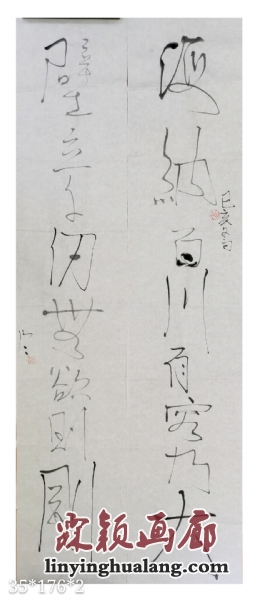 海纳百川有容乃大
壁立千仞無欲则剛
己亥
霖颖画廊
linyinghualang.com
35*176*2